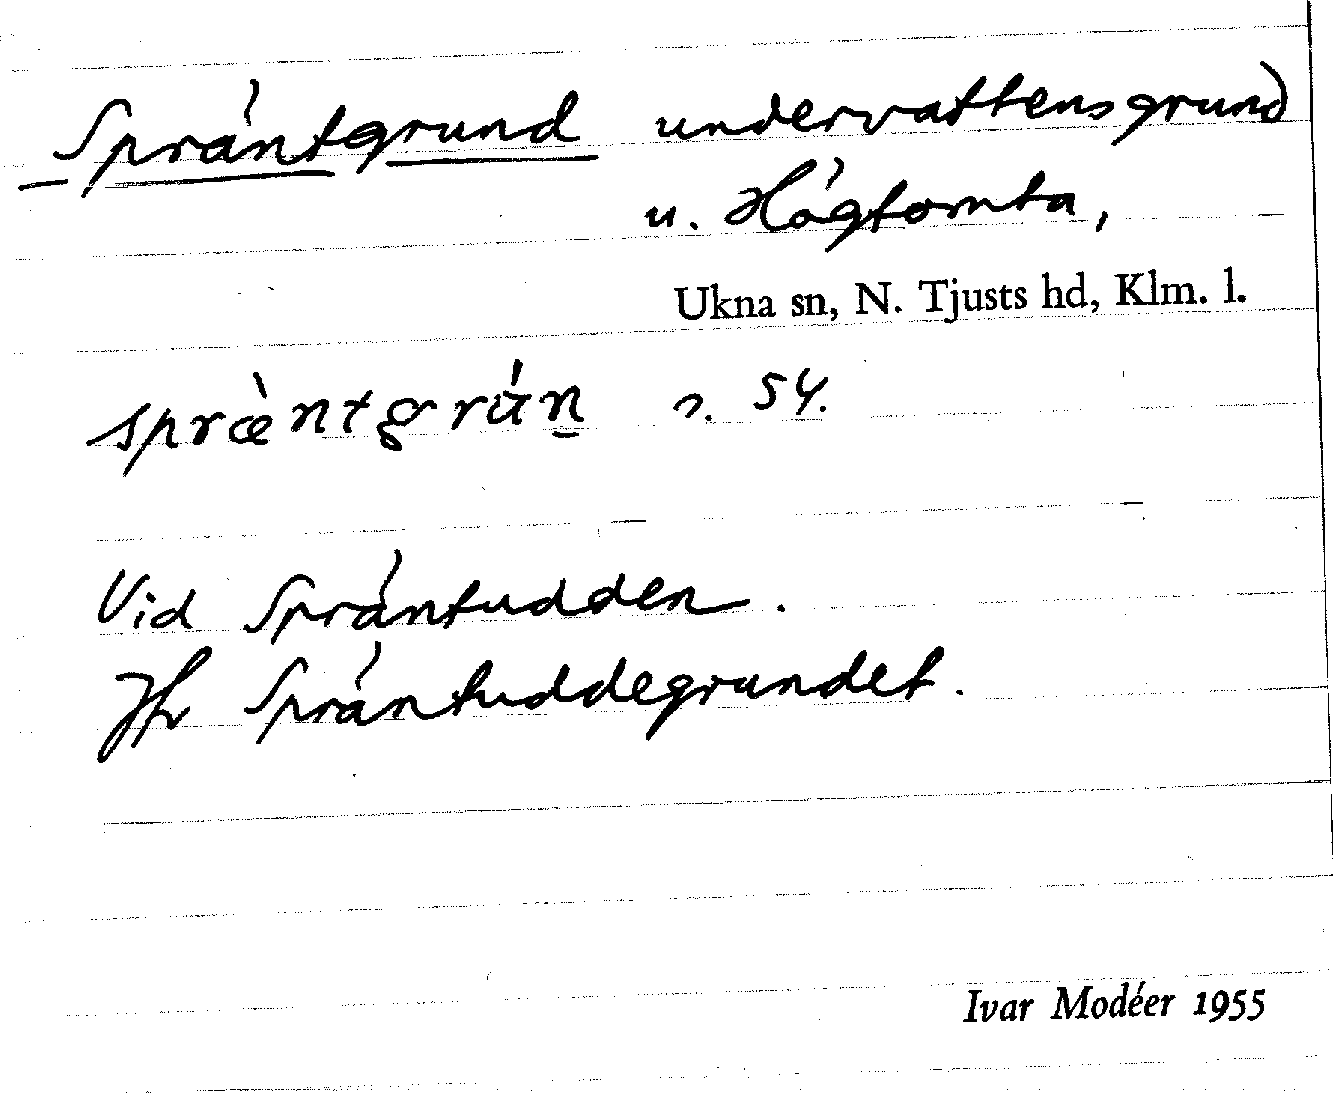 Spräntgrund undervattensgrund
u. Högtomta,
Ukna sn, N. Tjusts hd, Klm. l.
spræ̀ntgrún̲ s. 54.
Vid Spräntudden.
Jfr Spräntuddegrundet.
Ivar Modéer 1955